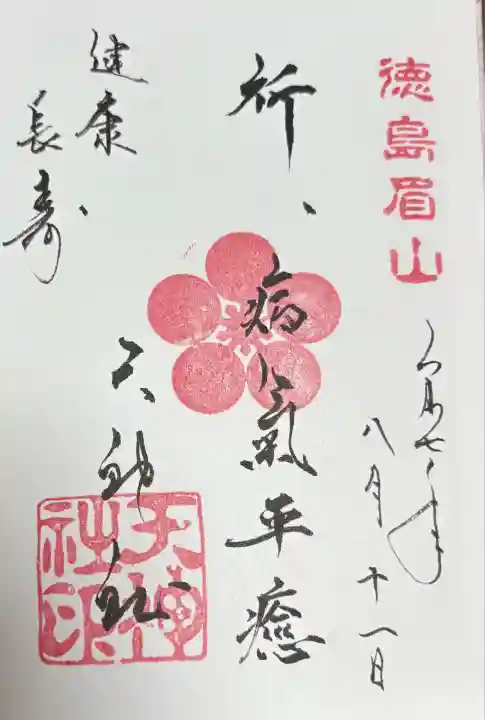 徳島眉山
令和七年
八月十一日
祈、病氣平癒
天神社
健康
長寿
天神社印